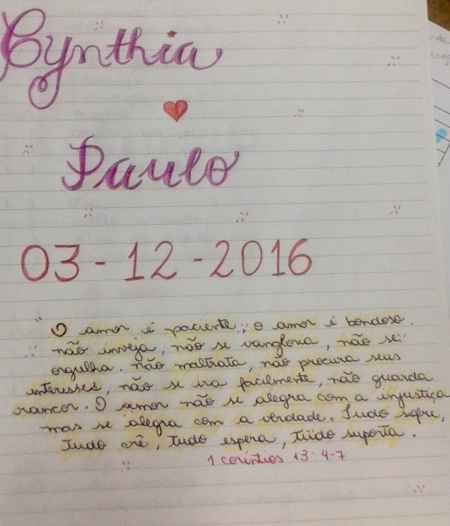 Cynthia
Paulo
03-12-2016
O amor é paciente, o amor é bondoso.
não inveja, não se vangloria, não se
orgulha. não maltrata, não procura seus
interesses, não se ira facilmente, não guarda
rancor. O amor não se alegra com a injustiça
mas se alegra com a verdade. Tudo sofre,
Tudo crê, Tudo espera, Tudo suporta.
1 coríntios 13:4-7